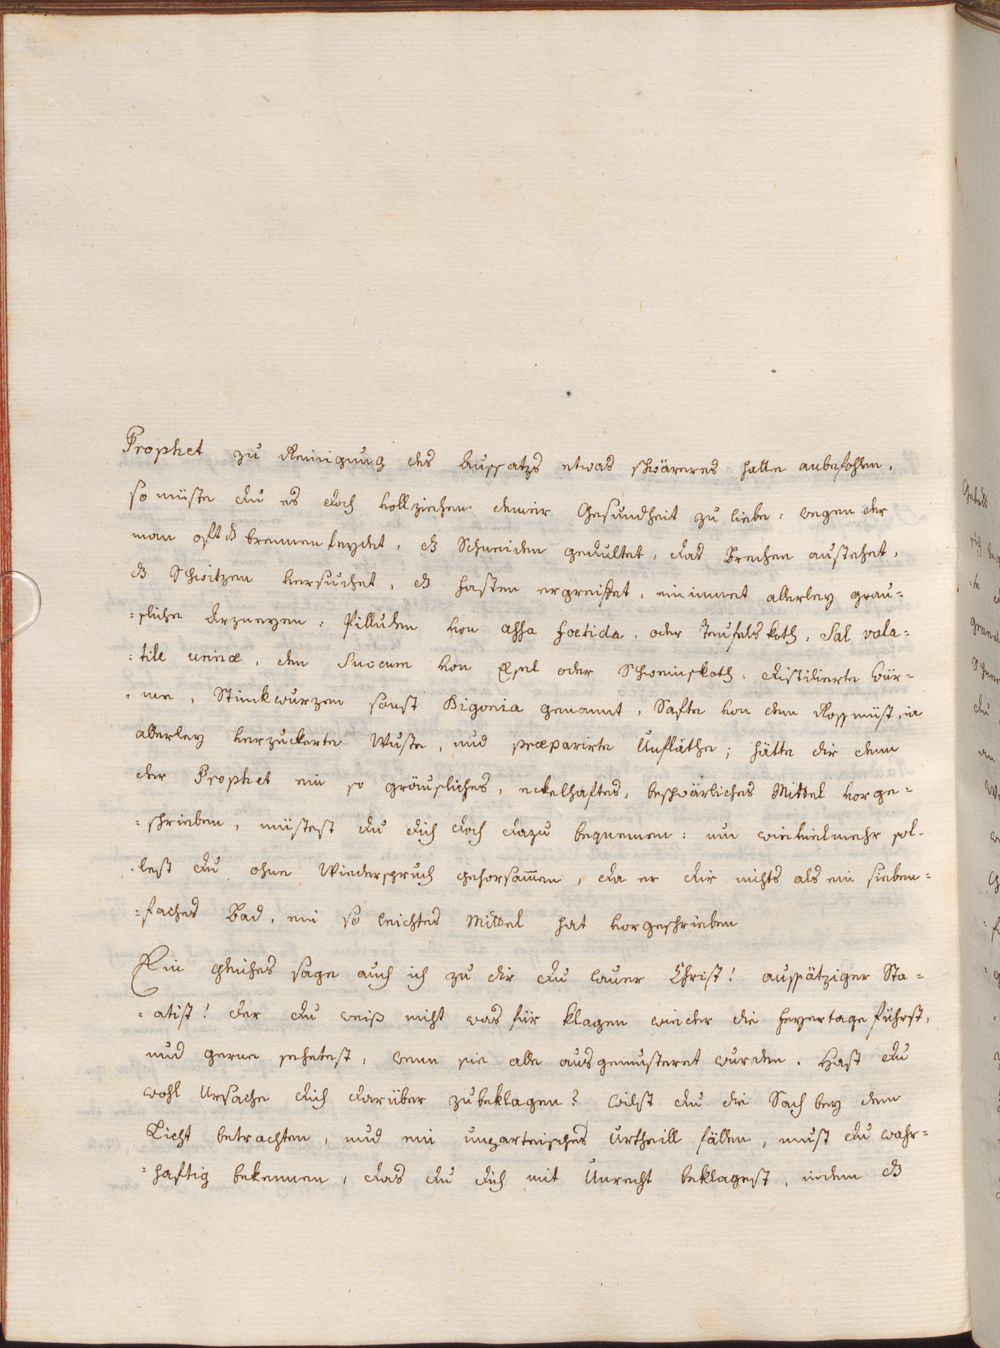 Prophet zu Reinigung des Aussatzs etwas schwäreres hatte anbefohlen,
so müste du es doch vollziehen deiner Gesundheit zu liebe: wegen der
man oft dz brennen leydet, dz Schneiden gedultet, das Brechen austehet,
dz Schwitzen versuchet, dz fasten ergreiffet, einimmet allerley grau-
-sliche Arzneyen: Pilluden von assa foetida, oder Teufelskoth, Sal vola-
-tile urinæ, den Succum von Esel oder Schweinskoth, distilierte wür-
-me, Stinkwurzen sonst Bigonia genannt, Safte von dem Rossmist, in
allerley verzuckerte Wuste, und præparirte Unfläthe; hätte dir denn
der Prophet ein so gräusliches, eckelhaftes, beschwärliches Mittel vorge-
-schrieben, müstest du dich doch dazu bequemen: um wievielmehr sol-
-lest du ohne Wiederspruch gehorsam̅en, da er dir nichts als ein sieben-
-faches Bad, ein so leichtes Mittel hat vorgeschrieben
Ein gleiches sage auch ich zu dir du lauer Christ! aussätziger Sta-
-atist! der du weiß nicht was für klagen wieder die Feyertage führst,
und gerne sehetest, wenn sie alle ausgemusteret wurden. Hast du
wohl Ursache dich darüber zubeklagen? wilst du die Sach bey dem
Licht betrachten, und ein unparteiisches Urtheill fällen, must du wahr-
-haftig bekennen, das du dich mit Unrecht beklagest, indem dz